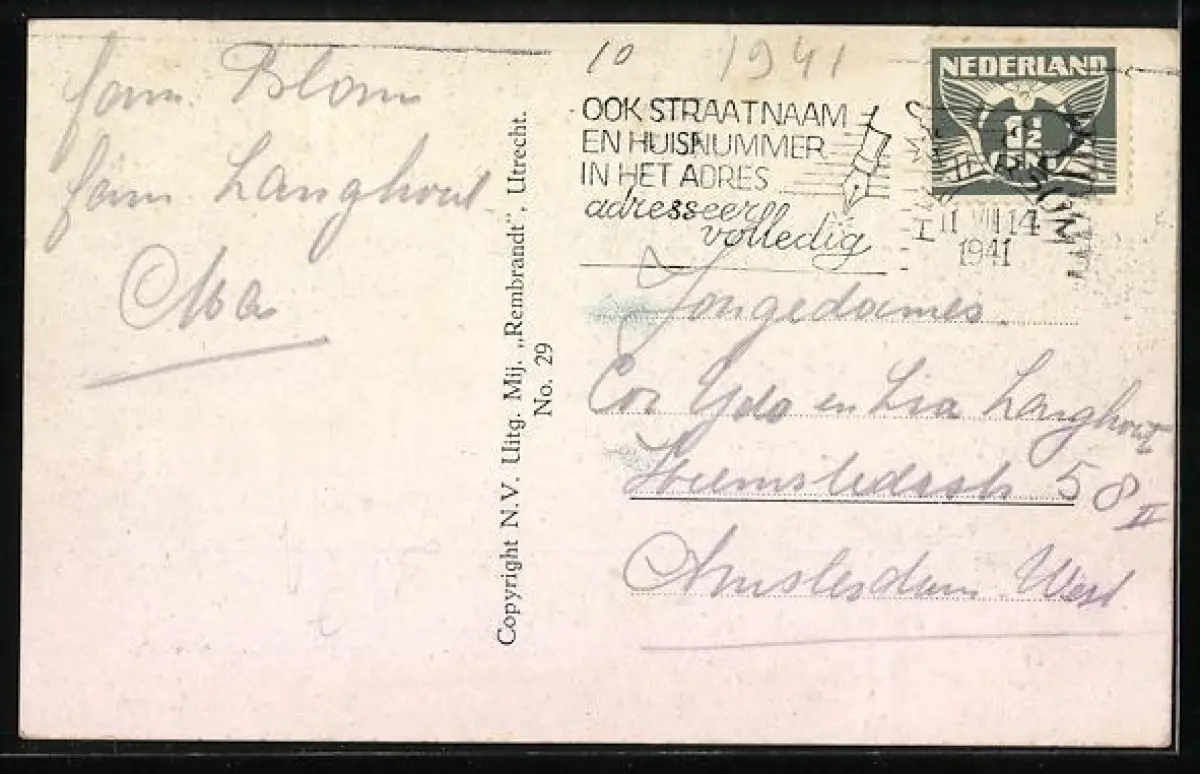 fam. Blom
fam. Langhout
Copyright N.V. Uitg. Mij. „Rembrandt”, Utrecht.
No. 29
10
1941
OOK STRAATNAAM
EN HUISNUMMER
IN HET ADRES
adresseer
volledig
NEDERLAND
1½
11 VIII 14
1941
Jongedames.
Cor Ydo en Lia Langhout
Heemstedestr 58 II
Amsterdam West